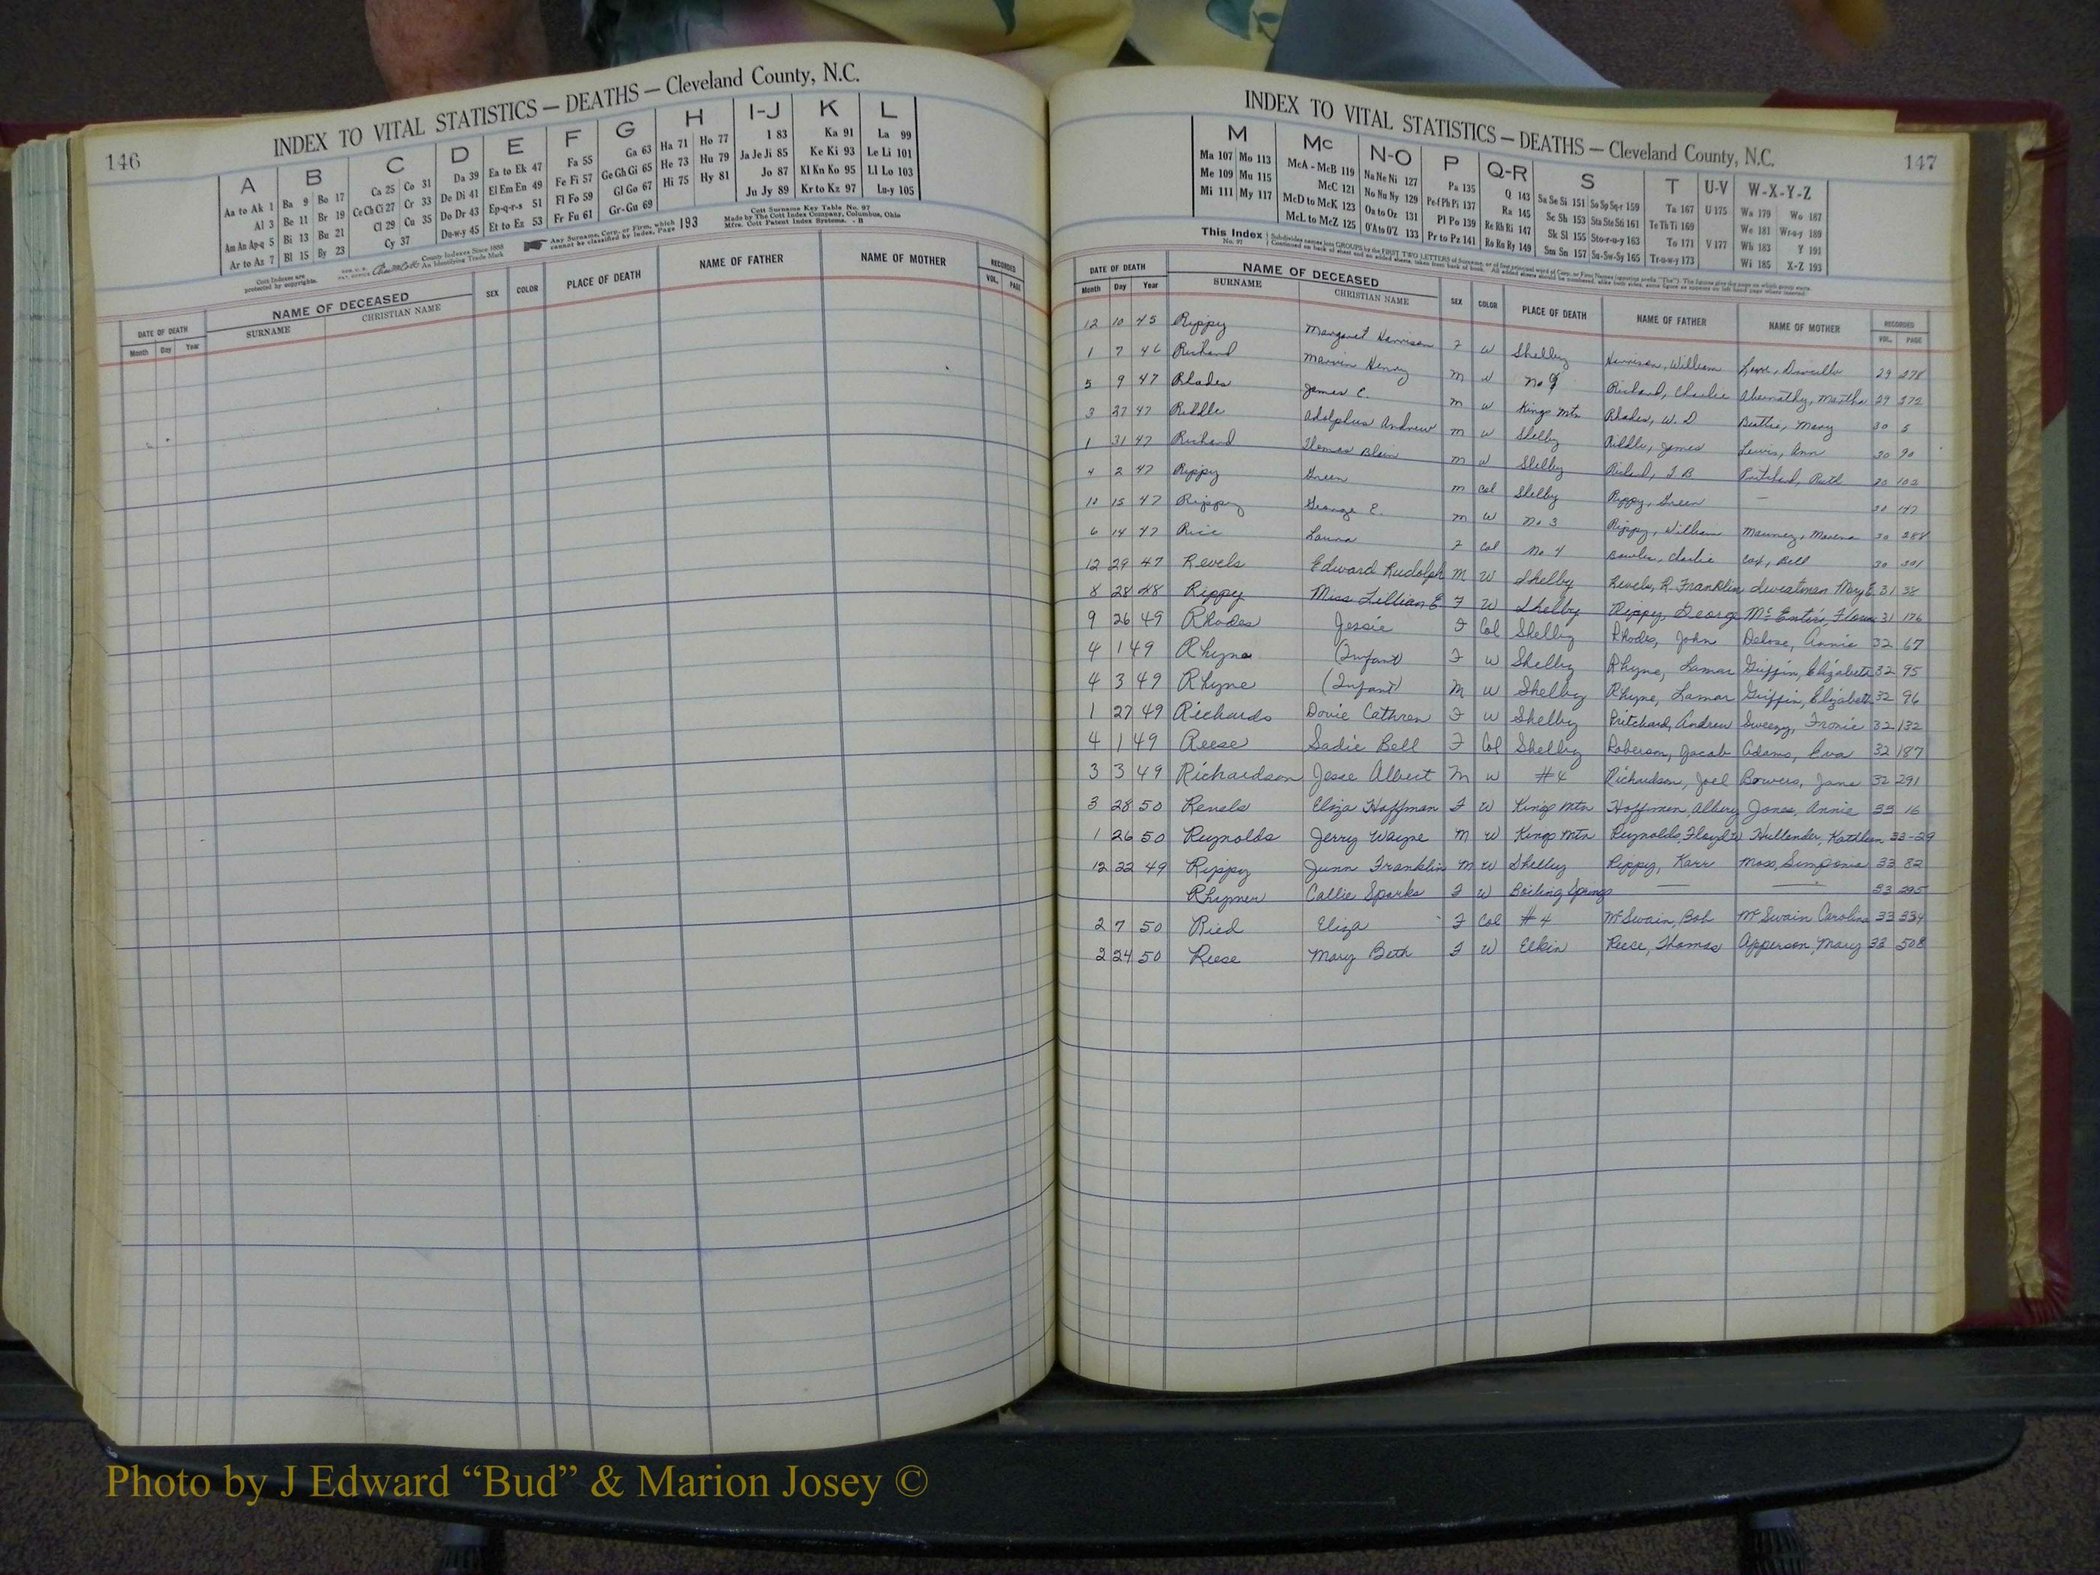 146
INDEX TO VITAL STATISTICS — DEATHS — Cleveland County, N.C.
A B C D E F G H I-J K L
Aa to Ak 1 Ba 9 Bo 17 Ca 25 Co 31 Da 39 Ea to Ek 47 Fa 55 Ga 63 Ha 71 Ho 77 I 83 Ka 91 La 99
Al 3 Be 11 Br 19 Ce Ch Ci 27 Cr 33 De Di 41 El Em En 49 Fe Fi 57 Ge Gh Gi 65 He 73 Hu 79 Ja Je Ji 85 Ke Ki 93 Le Li 101
Am An Ap-q 5 Bi 13 Bu 21 Cl 29 Cu 35 Do Dr 43 Ep-q-r-s 51 Fl Fo 59 Gl Go 67 Hi 75 Hy 81 Jo 87 Kl Kn Ko 95 Ll Lo 103
Ar to Az 7 Bl 15 By 23 Cy 37 Du-w-y 45 Et to Ez 53 Fr Fu 61 Gr-Gu 69 Ju Jy 89 Kr to Kz 97 Lu-y 105
Cott Indexes are protected by copyrights.
County Indexes Since 1888
An Identifying Trade Mark
Any Surname, Corp. or Firm, which cannot be classified by Index, Page 193
Cott Surname Key Table No. 97
Made by The Cott Index Company, Columbus, Ohio
Mfrs. Cott Patent Index Systems. - B
DATE OF DEATH NAME OF DECEASED SEX COLOR PLACE OF DEATH NAME OF FATHER NAME OF MOTHER RECORDED
Month Day Year SURNAME CHRISTIAN NAME VOL. PAGE
INDEX TO VITAL STATISTICS — DEATHS — Cleveland County, N.C.
147
M Mc N-O P Q-R S T U-V W-X-Y-Z
Ma 107 Mo 113 McA - McB 119 Na Ne Ni 127 Pa 135 Q 143 Sa Se Si 151 So Sp Sq-r 159 Ta 167 U 175 Wa 179 Wo 187
Me 109 Mu 115 McC 121 No Nu Ny 129 Pe-f Ph Pi 137 Ra 145 Sc Sh 153 Sta Ste Sti 161 Te Th Ti 169 We 181 Wr-u-y 189
Mi 111 My 117 McD to McK 123 Oa to Oz 131 Pl Po 139 Re Rh Ri 147 Sk Sl 155 Sto-r-u-y 163 To 171 V 177 Wh 183 Y 191
McL to McZ 125 O'A to O'Z 133 Pr to Pz 141 Ro Ru Ry 149 Sm Sn 157 Su-Sw-Sy 165 Tr-u-w-y 173 Wi 185 X-Z 193
This Index No. 97
DATE OF DEATH NAME OF DECEASED SEX COLOR PLACE OF DEATH NAME OF FATHER NAME OF MOTHER RECORDED
Month Day Year SURNAME CHRISTIAN NAME VOL. PAGE
12 10 45 Rippy Margaret Harrison F W Shelby Harrison, William Love, 29 278
1 7 46 Richard Marvin Henry M W No 9 Richard, Charlie Abernathy, Martha 29 372
5 9 47 Rhodes James C. M W Kings Mtn Rhodes, W. D Beattie, Mary 30 5
3 27 47 Riddle Adolphus Andrew M W Shelby Riddle, James Lewis, Ann 30 90
1 31 47 Richard Thomas M W Shelby Richard, T B Pritchard, Ruth 30 102
4 2 47 Rippy Green M Col Shelby Rippy, Green — 30 147
10 15 47 Rippy George E. M W No 3 Rippy, William Mauney, 30 288
6 14 47 Rice Laura F Col No 4 Bowles, Charlie Cox, Bell 30 301
12 29 47 Revels Edward Rudolph M W Shelby Revels, R. Franklin Sweatman Mary E 31 38
8 28 48 Rippy Miss Lillian E F W Shelby Rippy, George McEntire, 31 176
9 26 49 Rhodes Jessie F Col Shelby Rhodes, John Annie 32 67
4 1 49 Rhyne (Infant) F W Shelby Rhyne, Lamar Griffin, Elizabeth 32 95
4 3 49 Rhyne (Infant) M W Shelby Rhyne, Lamar Griffin, Elizabeth 32 96
1 27 49 Richards Dovie Cathren F W Shelby Pritchard, Andrew Sweezy, Fronie 32 132
4 1 49 Reese Sadie Bell F Col Shelby Roberson, Jacob Adams, Eva 32 187
3 3 49 Richardson Jesse Albert M W #4 Richardson, Joel Bowers, Jane 32 291
3 28 50 Revels Eliza Hoffman F W Kings Mtn Hoffman, Jones, Annie 33 16
1 26 50 Reynolds Jerry Wayne M W Kings Mtn Reynolds, Floyd Hullender, Kathleen 33-29
12 22 49 Rippy Junn Franklin M W Shelby Rippy, Karr Moss, 33 82
Rhymer Callie Sparks F W Boiling Springs — — 33 295
2 7 50 Ried Eliza F Col #4 McSwain, Bob McSwain Caroline 33 334
2 24 50 Reese Mary Beth F W Elkin Reese, Thomas Apperson, Mary 33 508
Photo by J Edward “Bud” & Marion Josey ©